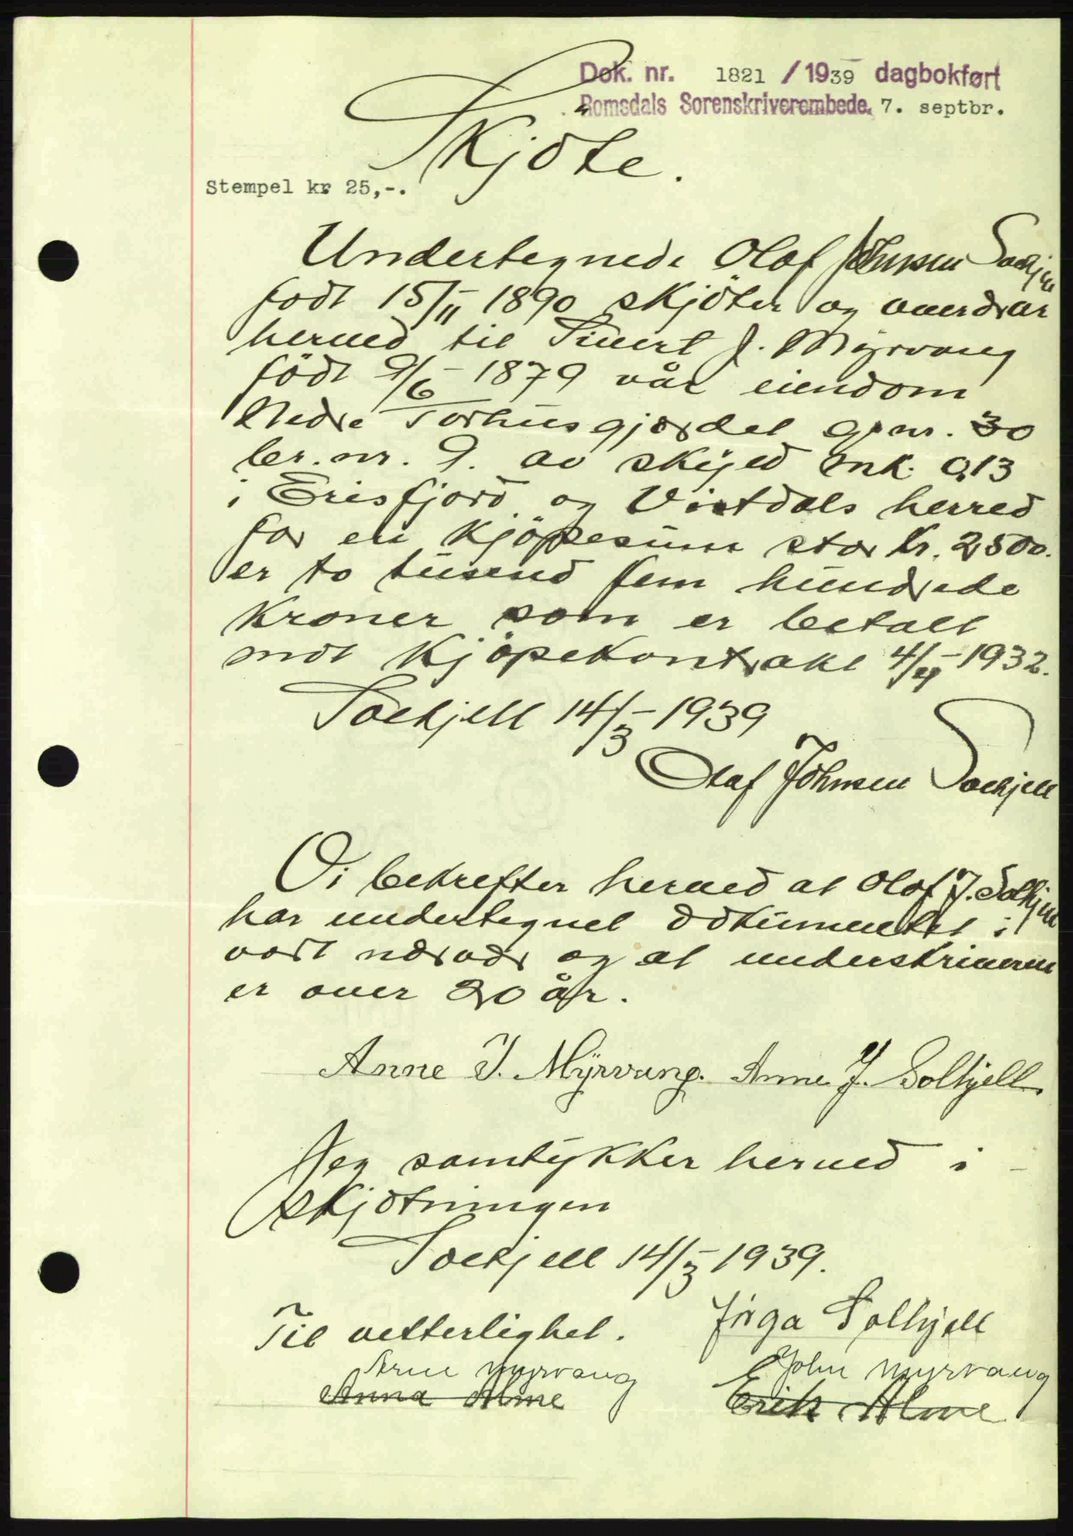 Dok. nr. 1821 / 1939 dagbokført
Romsdals Sorenskriverembede. 7. septbr.
Skjöte.
Stempel kr 25,-.
Undertegnede Olaf Johnsen Solkjell
født 15/11 1890 skjöter og overdrar
herved til Sivert J. Myrvang
födt 9/6 - 1879 vår eiendom
Nedre Torhusgjerdet gr.nr. 30
br.nr. 9. av skyld mk. 0,13
i Erisfjord og Vistdals herred
for en kjöpesum stor kr. 2500.
er to tusend fem hundrede
kroner som er betalt
mot kjöpekontrakt 4/4 - 1932.
Solkjell 14/3 - 1939
Olaf Johnsen Solkjell
Vi bekrefter herved at Olaf J. Solkjell
har undertegnet dokumentet i
vort nærvær og at underskriveren
er over 20 år.
Anne J. Myrvang. Anne J. Solkjell.
Jeg samtykker herved i
skjötningen
Solkjell 14/3 - 1939.
Til vetterlighet. Inga Solkjell
Arne Myrvang John Myrvang
Anna Alme Erik Alme